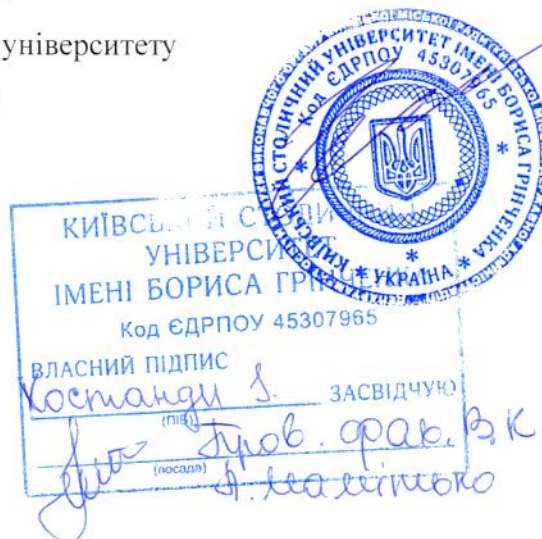 університету
КИЇВСЬКИЙ СТОЛИЧНИЙ УНІВЕРСИТЕТ ІМЕНІ БОРИСА ГРІНЧЕНКА
Код ЄДРПОУ 45307965
* УКРАЇНА *
КИЇВСЬКИЙ СТОЛИЧНИЙ
УНІВЕРСИТЕТ
ІМЕНІ БОРИСА ГРІНЧЕНКА
Код ЄДРПОУ 45307965
ВЛАСНИЙ ПІДПИС
Костанди
ЗАСВІДЧУЮ
(ПІБ)
Пров. фах. ВК
(посада)